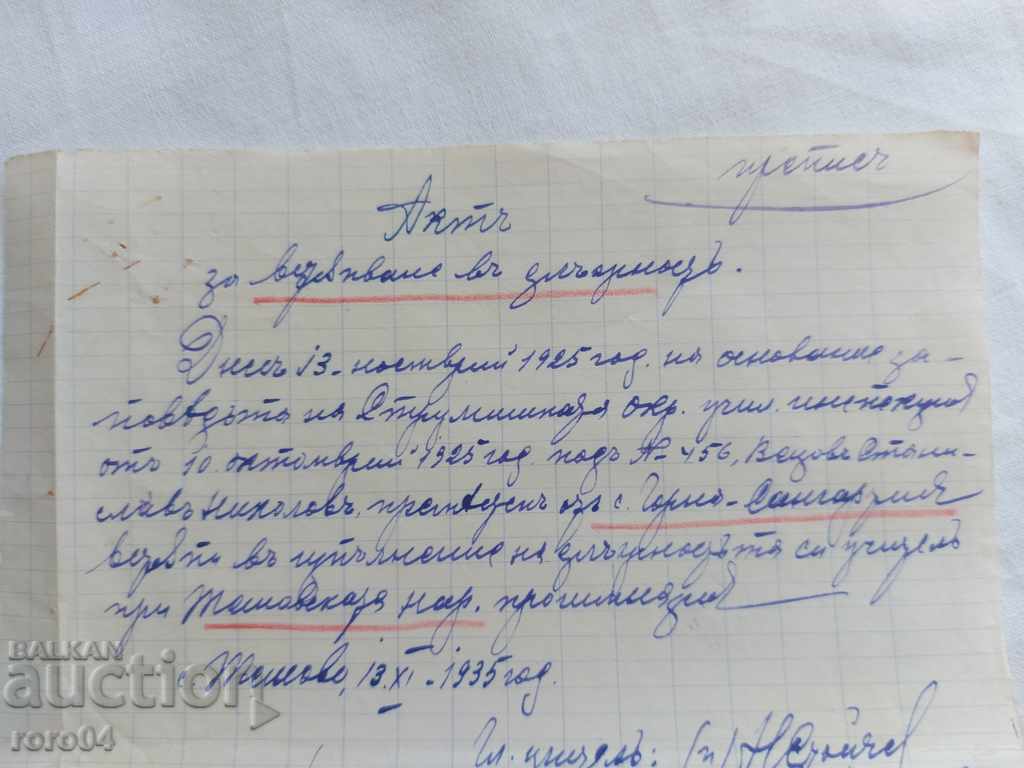 преписъ
Актъ
за встѫпване въ длъжность.
Днесъ 13 ноемврий 1925 год. на основание за-
поведьта на Струмишката окр. учил. инспекция
отъ 10 октомврий 1925 год. подъ № 456, Вецовъ Стани-
славъ Николовъ, преведенъ отъ с. Горно-Сингартия
встѫпи въ изпълнение на длъжностьта си учитель
при Тешовската нар. прогимназия
с. Тешово, 13.XI.1935 год.
Гл. учитель: (п) Н Стойчев
BALKAN
auction
roro04